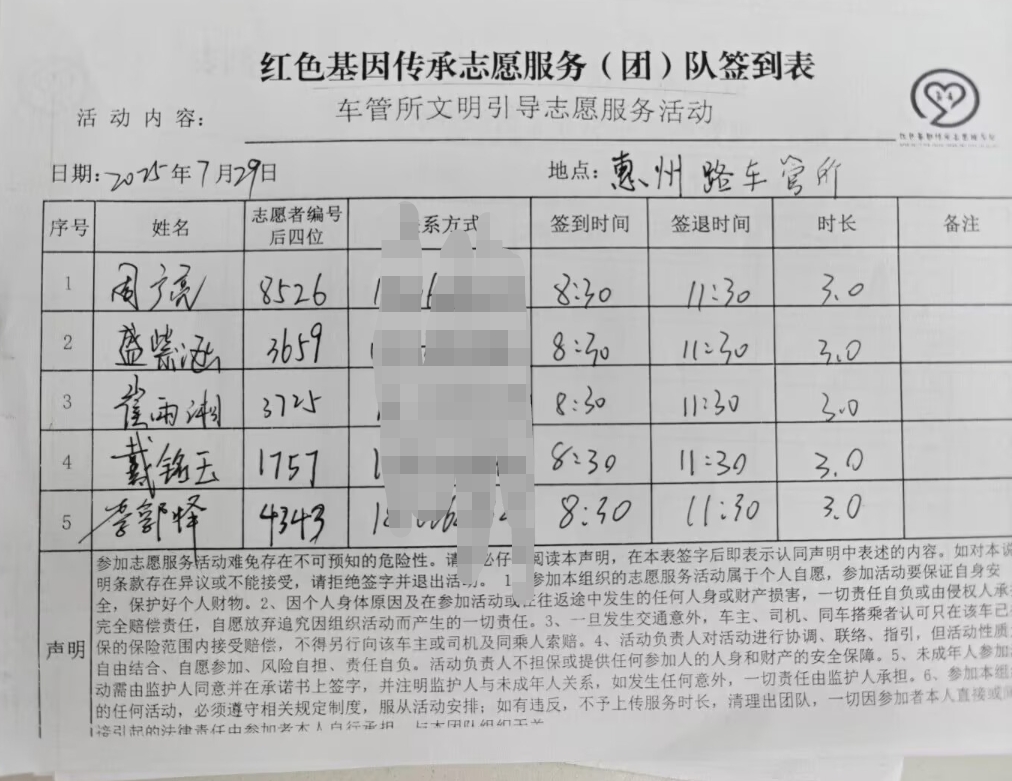 红色基因传承志愿服务（团）队签到表
活动内容： 车管所文明引导志愿服务活动
日期：2025年7月29日 地点：惠州路车管所
序号 姓名 志愿者编号后四位 系方式 签到时间 签退时间 时长 备注
1 周亮 8526 8:30 11:30 3.0
2 盛紫涵 3659 8:30 11:30 3.0
3 崔雨湘 3725 8:30 11:30 3.0
4 戴铭玉 1757 8:30 11:30 3.0
5 李郭烽 4343 8:30 11:30 3.0
声明
参加志愿服务活动难免存在不可预知的危险性。请 必仔 阅读本声明，在本表签字后即表示认同声明中表述的内容。如对本说
明条款存在异议或不能接受，请拒绝签字并退出活动。 1 参加本组织的志愿服务活动属于个人自愿，参加活动要保证自身安
全，保护好个人财物。2、因个人身体原因及在参加活动或 往返途中发生的任何人身或财产损害，一切责任自负或由侵权人承担
完全赔偿责任，自愿放弃追究因组织活动而产生的一切责任。3、一旦发生交通意外，车主、司机、同车搭乘者认可只在该车已
保的保险范围内接受赔偿，不得另行向该车主或司机及同乘人索赔。4、活动负责人对活动进行协调、联络、指引，但活动性质
自由结合、自愿参加、风险自担、责任自负。活动负责人不担保或提供任何参加人的人身和财产的安全保障。5、未成年人参加
动需由监护人同意并在承诺书上签字，并注明监护人与未成年人关系，如发生任何意外，一切责任由监护人承担。6、参加本组
的任何活动，必须遵守相关规定制度，服从活动安排；如有违反，不予上传服务时长，清理出团队，一切因参加者本人直接或间
接引起的法律责任由参加者本人自行承担，与本团队组织无关